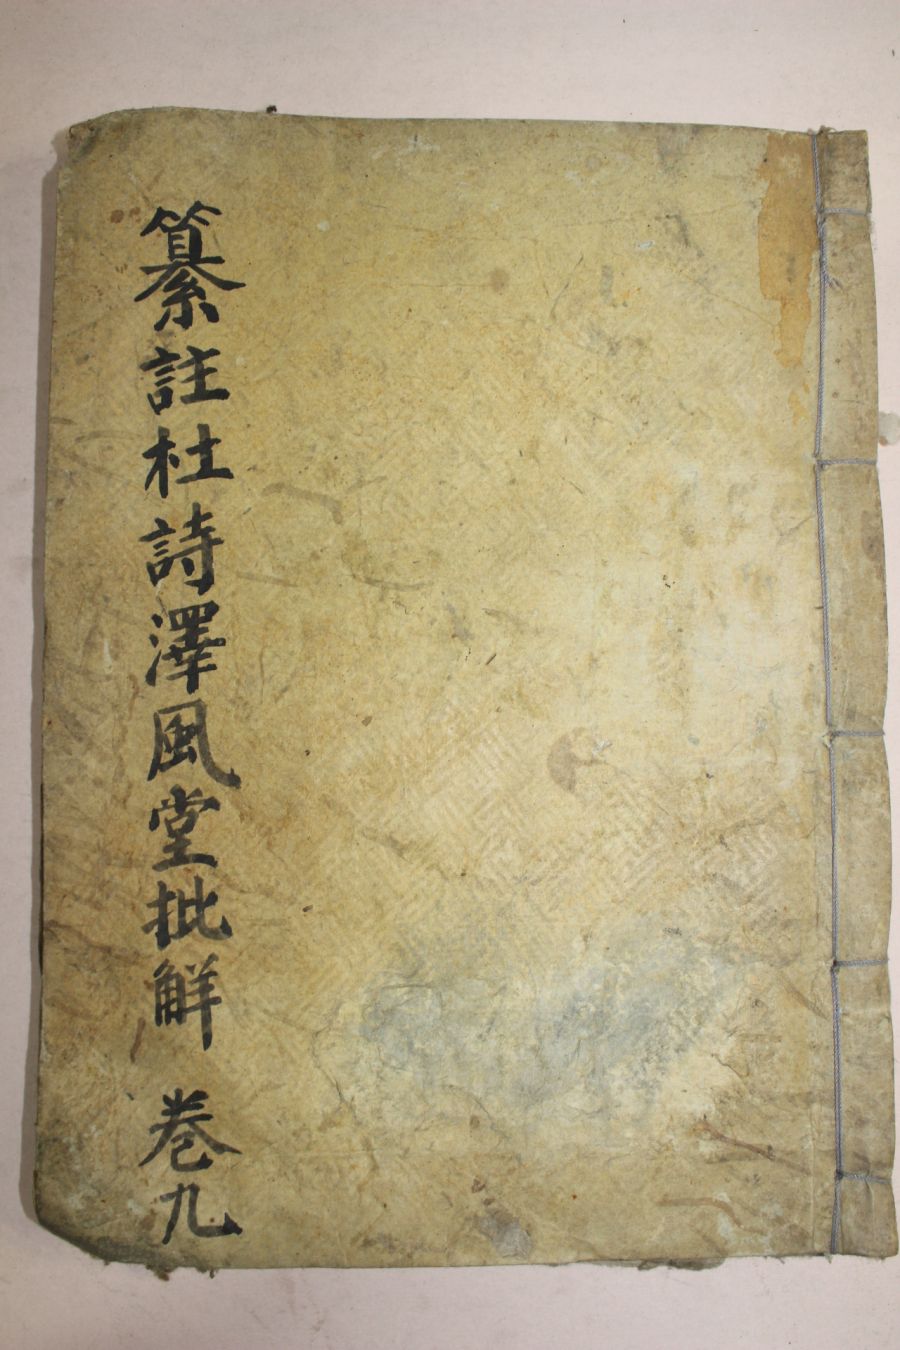 纂註杜詩澤風堂批觧 卷九